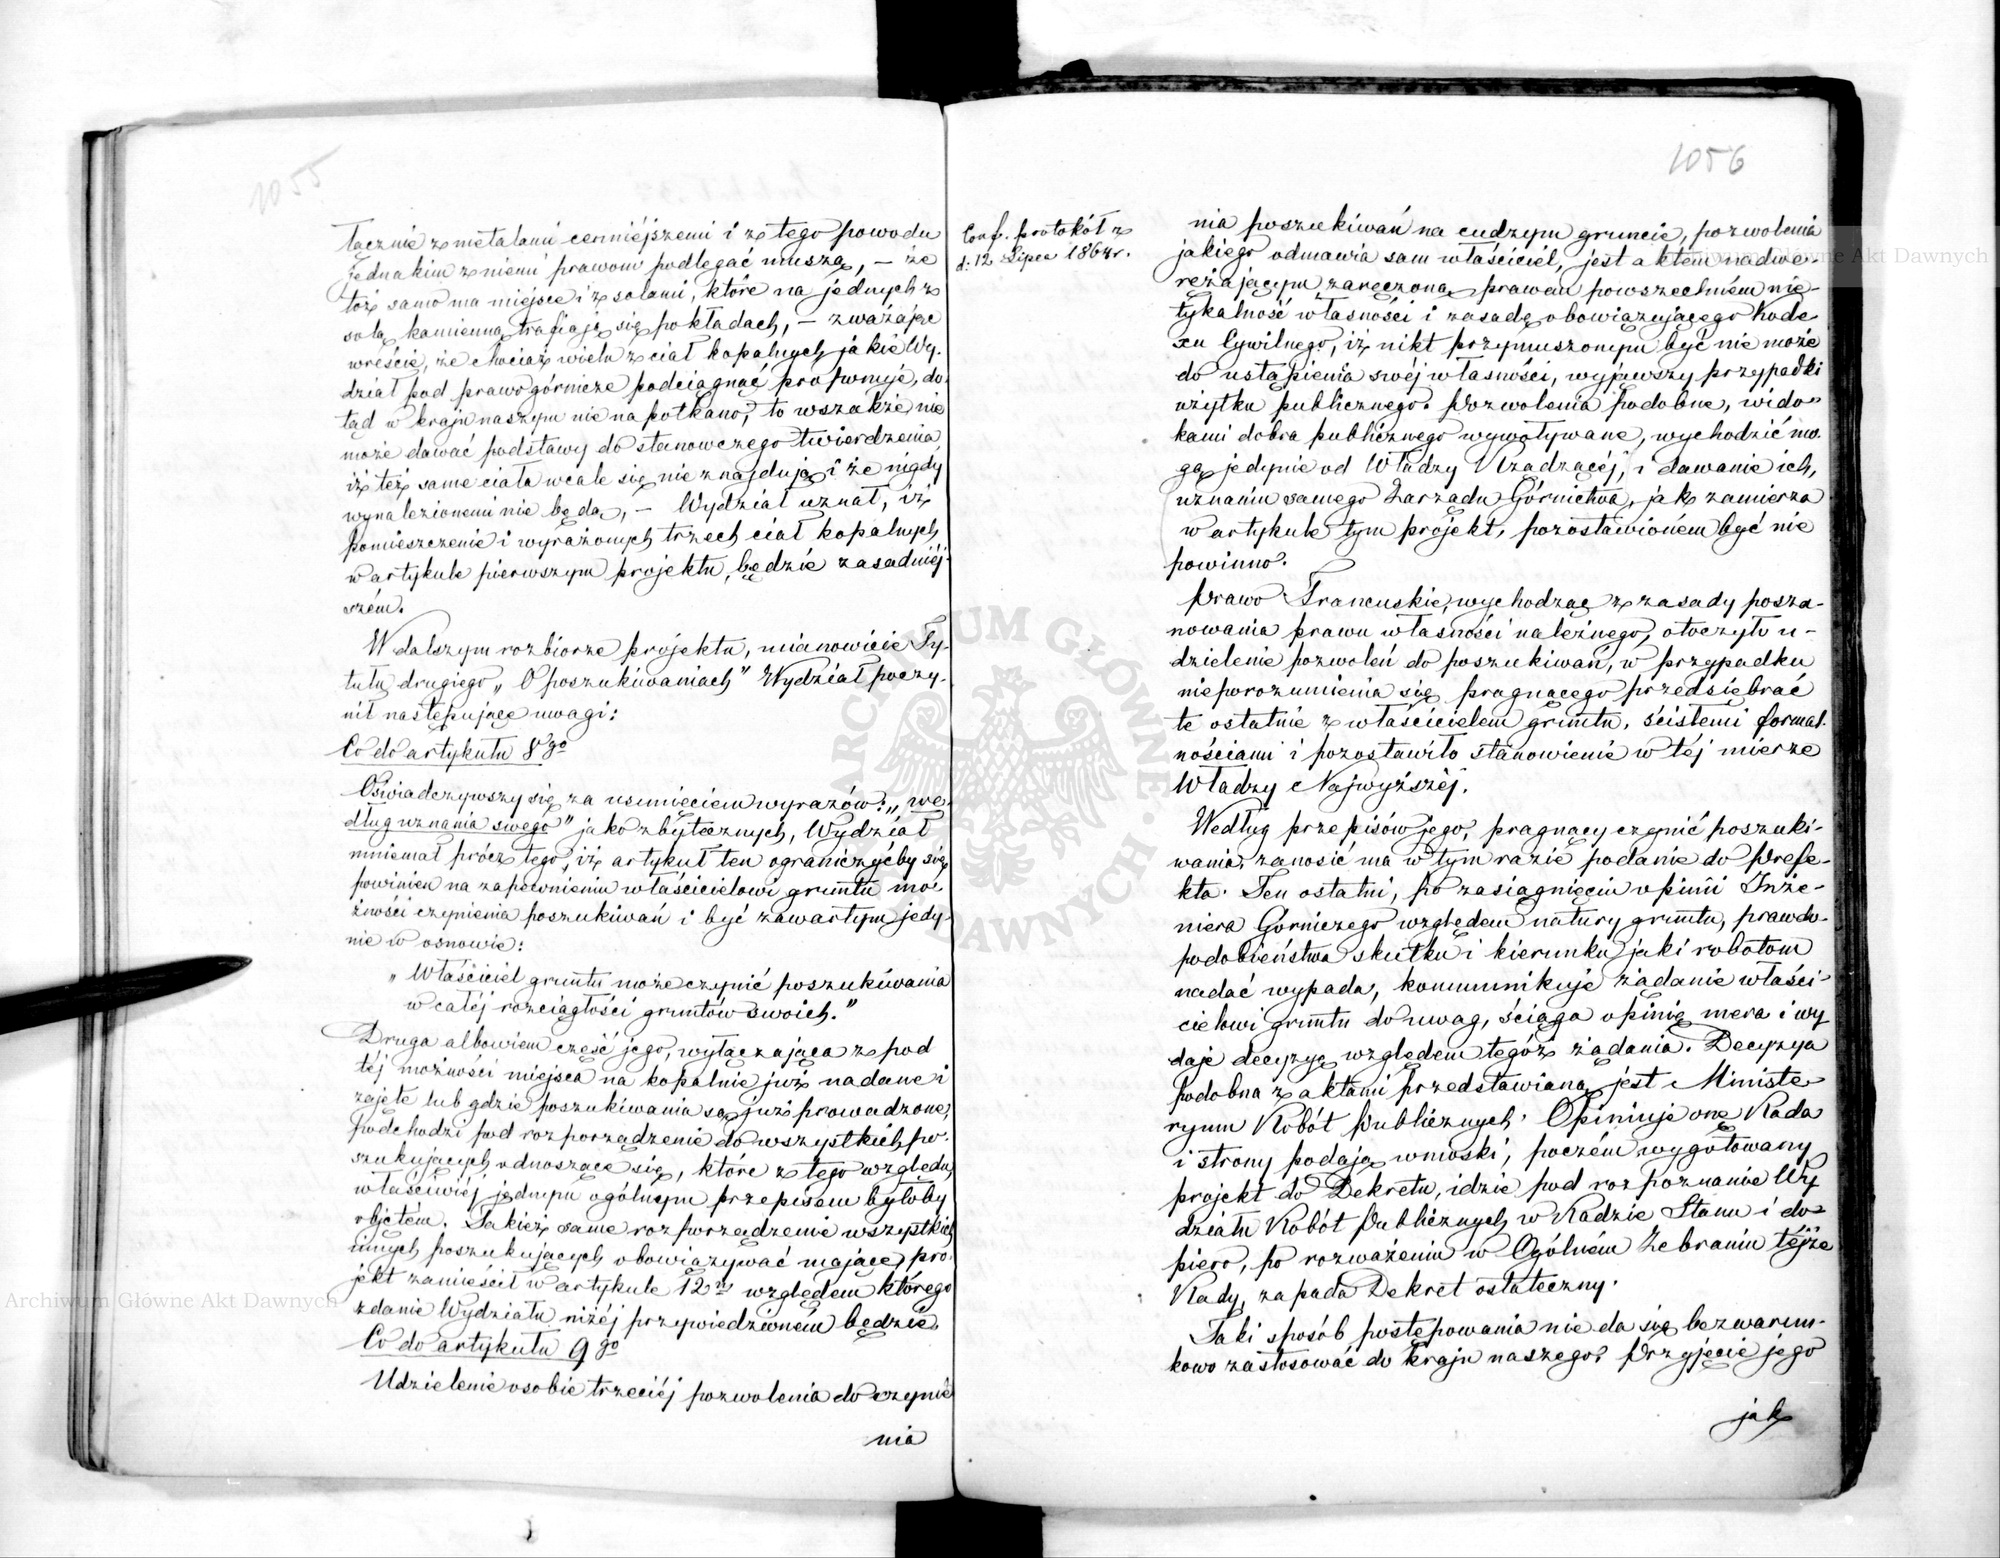 1055
łącznie z metalami cenniéjszemi i z tego powodu
jednakim z niemi prawom podlegać muszą, – że
toż samo ma miejsce i z solami, które na jednych z
solą kamienną trafiają się pokładach, – zważając
wreście, że chociaż wielu z ciał kopalnych jakie Wy-
dział pod prawo górnicze podciągnąć proponuje, do-
tąd w kraju naszym nie napotkano, to wszakże nie
może dawać podstawy do stanowczego twierdzenia,
iż też same ciała wcale się nie znajdują i że nigdy
wynalezionemi nie będą, – Wydział uznał, iż
pomieszczenie i wyrażonych trzech ciał kopalnych
w artykule pierwszym projektu, będzie zasadniéj-
szém.
W dalszym rozbiorze projektu, mianowicie Ty-
tułu drugiego „O poszukiwaniach” Wydział poczy-
nił następujące uwagi:
Co do artykułu 8go
Oświadczywszy się za usunięciem wyrazów: „we-
dług uznania swego” jako zbytecznych, Wydział
mniemał prócz tego, iż artykuł ten ograniczyćby się
powinien na zapewnieniu właścicielowi gruntu mo-
żności czynienia poszukiwań i być zawartym jedy-
nie w osnowie:
„Właściciel gruntu może czynić poszukiwania
w całéj rozciągłości gruntów swoich.”
Druga albowiem część jego, wyłączająca z pod
téj możności miejsca na kopalnie już nadane i
zajęte lub gdzie poszukiwania są już prowadzone,
podchodzi pod rozporządzenie do wszystkich po-
szukujących odnoszące się, które z tego względu,
właściwiéj jednym ogólnym przepisem byłoby
objętém. Takież same rozporządzenie wszystkich
innych poszukujących obowiązywać mające, pro-
jekt zamieścił w artykule 12m względem którego
zdanie Wydziału niżéj przywiedzioném będzie.
Co do artykułu 9go
Udzielenie osobie trzeciéj pozwolenia do czynie-
nia
1056
Conf. protokół z
d: 12 Lipca 1864r.
nia poszukiwań na cudzym gruncie, pozwolenia
jakiego odmawia sam właściciel, jest aktém nadwe-
rężającym zaręczoną prawem powszechném nie-
tykalność własności i zasadę obowiązującego Kode-
xu Cywilnego, iż nikt przymuszonym być nie może
do ustąpienia swéj własności, wyjąwszy przypadki
użytku publicznego. Pozwolenia podobne, wido-
kami dobra publicznego wywoływane, wychodzić mo-
gą jedynie od Władzy Rządzącéj, i dawanie ich,
uznaniu samego Zarządu Górnictwa, jak zamierza
w artykule tym projekt, pozostawioném być nie
powinno.
Prawo Francuskie, wychodząc z zasady posza-
nowania prawu własności należnego, otoczyło u-
dzielenie pozwoleń do poszukiwań, w przypadku
nieporozumienia się pragnącego przedsiębrać
te ostatnie z właścicielem gruntu, ścisłemi formal-
nościami i pozostawiło stanowienie w téj mierze
Władzy Najwyższéj.
Według przepisów jego, pragnący czynić poszuki-
wania, zanosić ma w tym razie podanie do Prefe-
kta. Ten ostatni, po zasiągnięciu opinii Inże-
niera Górniczego względem natury gruntu, prawdo-
podobieństwa skutku i kierunku jaki robotom
nadać wypada, kommunikuje żądanie właści-
cielowi gruntu do uwag, ściąga opinię mera i wy
daje decyzyę względem tegóż żądania. Decyzya
podobna z aktami przedstawianą jest Ministe-
ryum Robót Publicznych. Opiniuje onę Rada
i strony podają wnioski, poczém wygotowany
projekt do Dekretu, idzie pod rozpoznanie Wy
działu Robót Publicznych w Radzie Stanu i do-
piero, po rozważeniu w Ogólném Zebraniu téjże
Rady, zapada Dekret ostateczny.
Taki sposób postępowania nie da się bezwarun-
kowo zastosować do kraju naszego. Przyjęcie jego
jak
ARCHIWUM GŁÓWNE AKT DAWNYCH
Archiwum Główne Akt Dawnych
Archiwum Główne Akt Dawnych